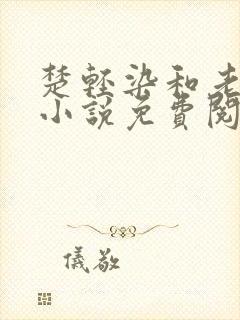 楚輕染和老
小說免費閱
儀敬